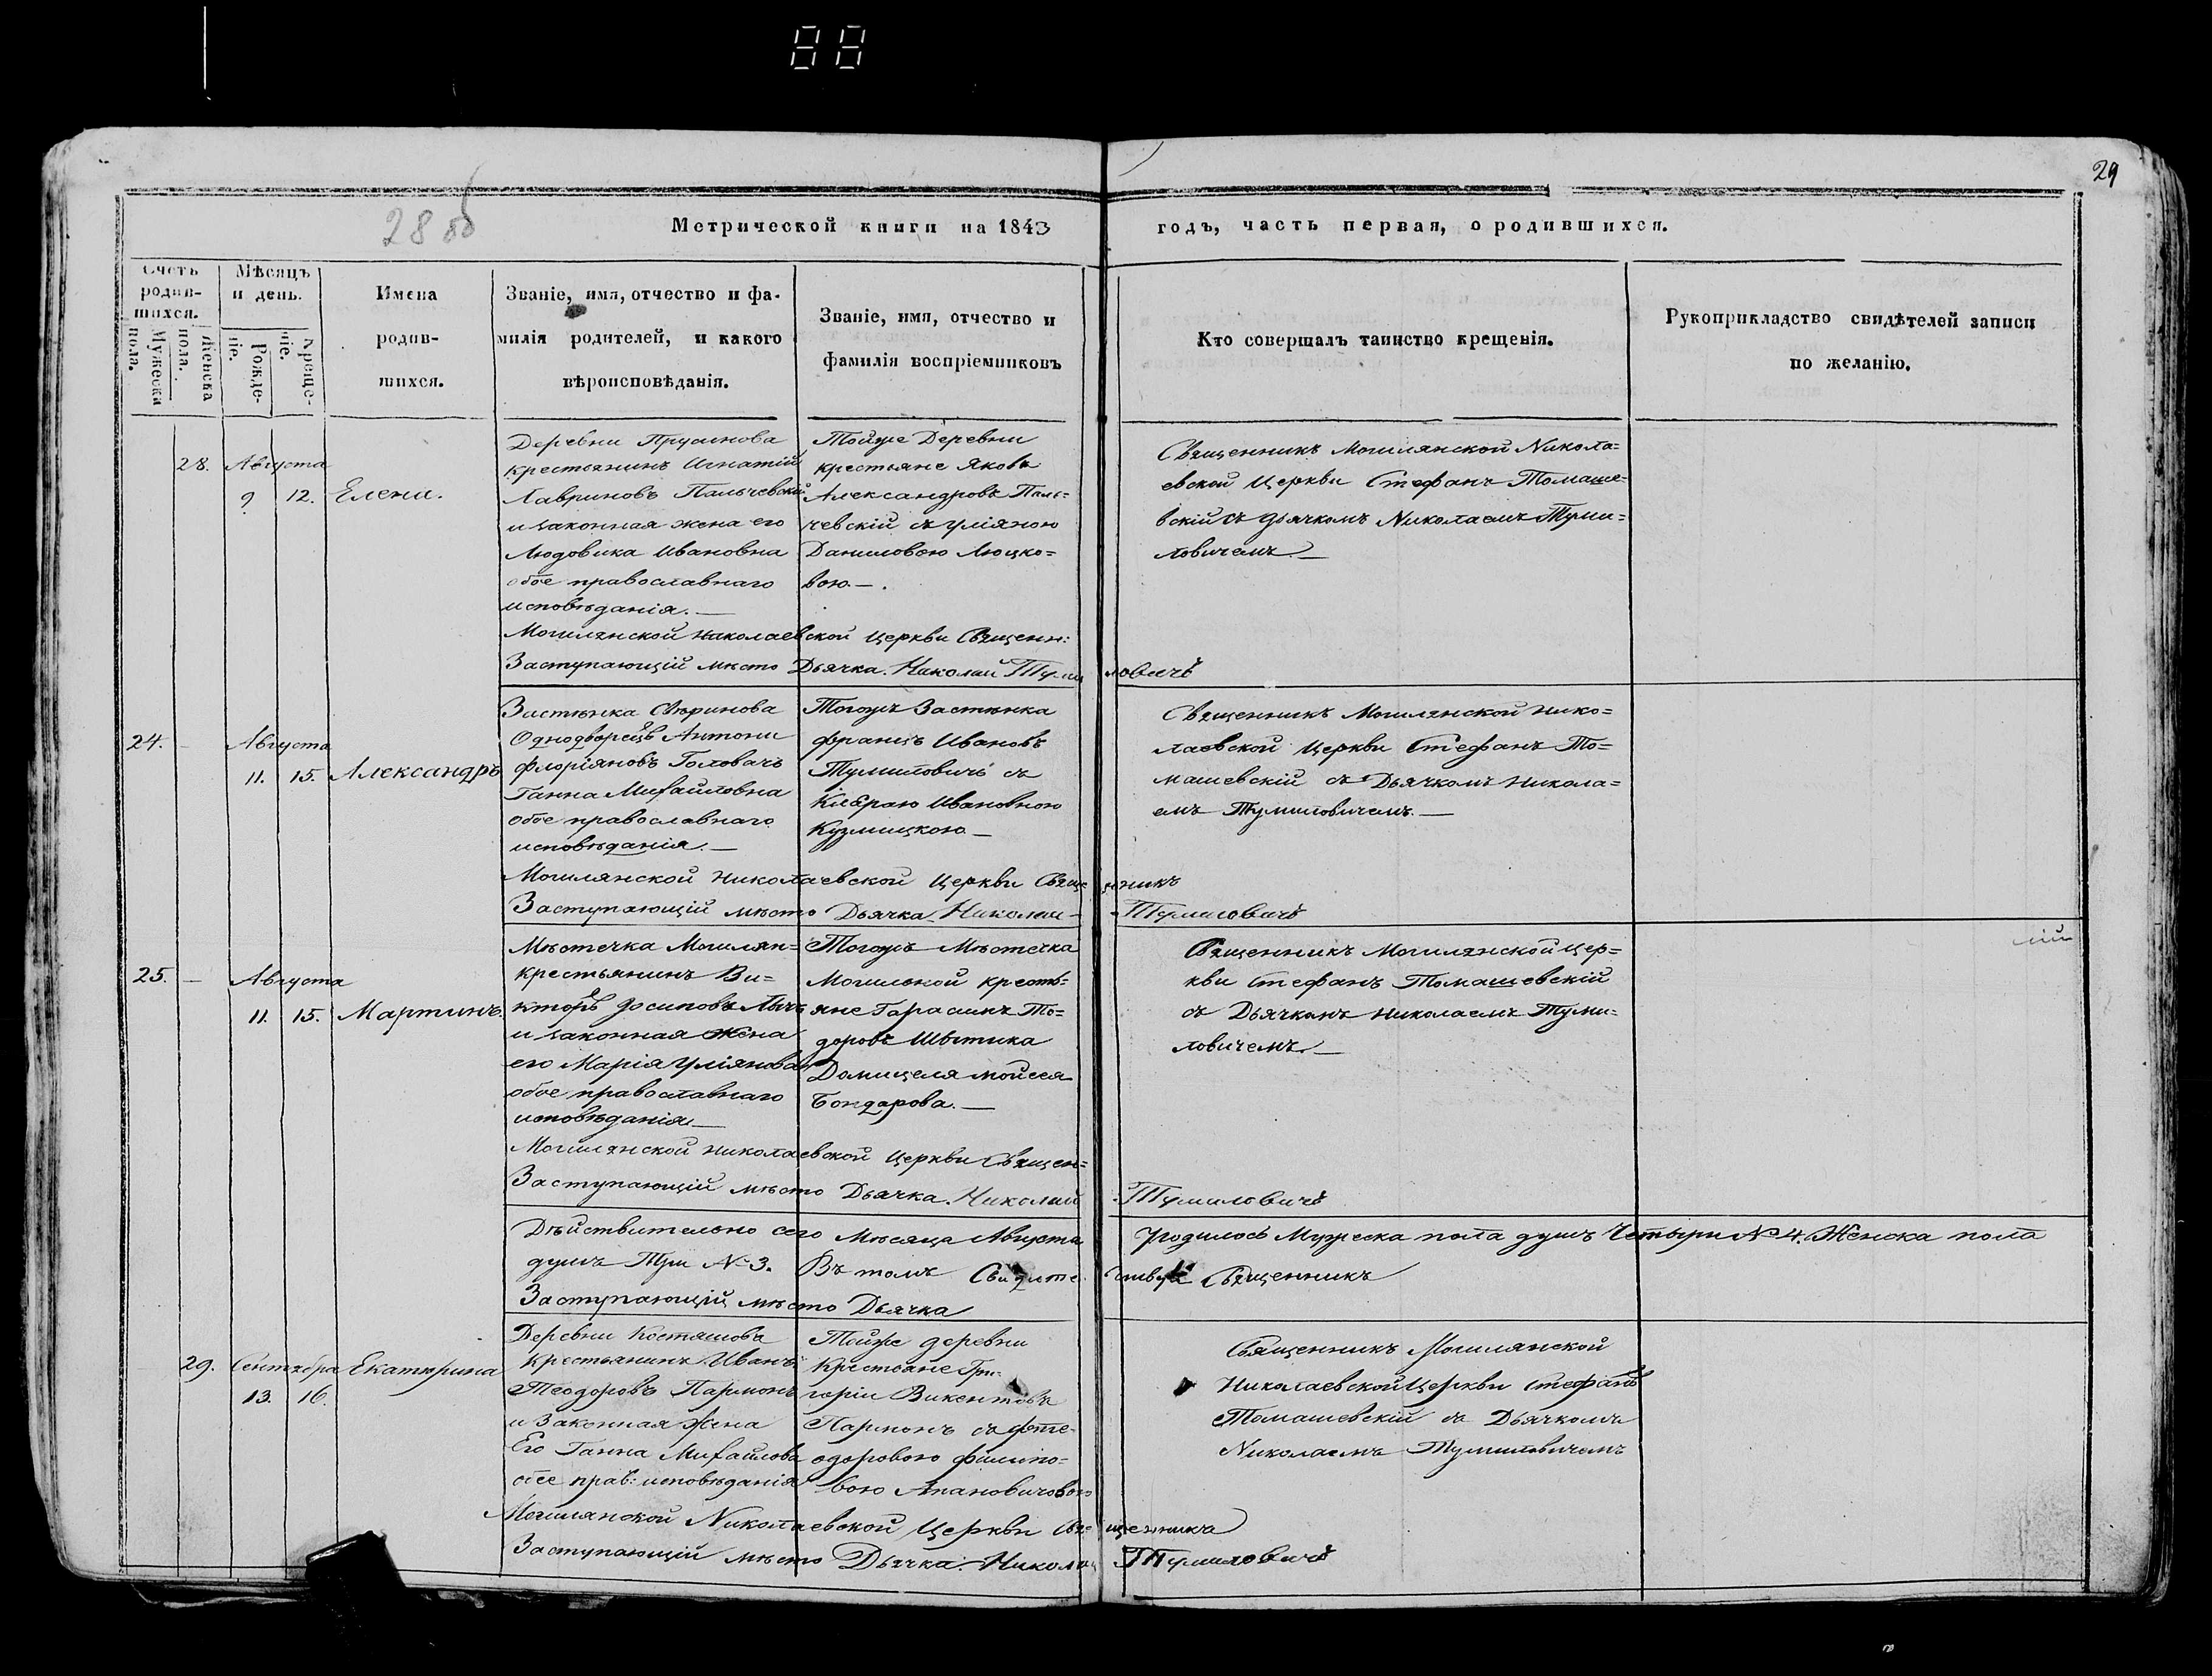 29
Метрической книги на 1843 годъ, часть первая, о родившихся.
Счетъ родив-шихся.
Мужеска пола.
Женска пола.
Мѣсяцъ и день.
Рожде-ніе.
Креще-ніе.
Имена
родив-
шихся.
Званіе, имя, отчество и фа-
милія родителей, и какого
вѣроисповѣданія.
Званіе, имя, отчество и
фамилія воспріемниковъ
Кто совершалъ таинство крещенія.
Рукоприкладство свидѣтелей записи
по желанію.
28. Августа
9 12. Елена.
Деревни Прусинова
крестьянинъ Игнатій
Лавриновъ Пальчевскій
и законная жена его
Людовика Ивановна
обое православнаго
исповѣданія.—
Тойже Деревни
крестьяне Яковъ
Александровъ Паль=
чевскій съ Уліяною
Даниловою Люцко=
вою.—.
Священникъ Могилянской Никола=
евской Церкви Стефанъ Томаше=
вскій съ дьячкомъ Николаемъ Туми=
ловичемъ.—
Могилянской Николаевской Церкви Священн:
Заступающій мѣсто Дьячка. Николай Тумиловичъ
24. - Августа
11. 15. Александръ
Застѣнка
Однодворецъ Антони
Флоріяновъ Головачъ
Ганна Михайловна
обое православнаго
исповѣданія.—
Тогожъ Застѣнка
Францъ Ивановъ
Тумиловичъ съ
Ивановною
Кузмицкою—
Священникъ Могилянской Нико=
лаевской Церкви Стефанъ То=
машевскій съ Дьячкомъ Никола=
емъ Тумиловичемъ.—
Могилянской Николаевской Церкви Священникъ
Заступающій мѣсто Дьячка Николай Тумиловичъ
25. - Августа
11. 15. Мартинъ.
Мѣстечка Могилян=
крестьянинъ Ви=
кторъ Іосиповъ
и законная жена
его Марія Уліянова
обое православнаго
исповѣданія—
Тогожъ Мѣстечка
Могильной кресть=
яне Гарасимъ То=
доровъ
Домицеля Мойсея
Бондарова.—
Священникъ Могилянской Цер=
кви Стефанъ Томашевскій
съ Дьячкомъ Николаемъ Туми=
ловичемъ.—
Могилянской Николаевской Церкви Священ=
Заступающій мѣсто Дьячка. Николай Тумиловичъ
Дѣйствительно сего Мѣсяца Августа Уродилось Мужеска пола душъ Четыри №4. Женска пола
душъ Три №3. Въ томъ Свидительствуй Священникъ
Заступающій мѣсто Дьячка
29. Сентября Екатерина
13. 16.
Деревни Костяшова
Крестьянинъ Иванъ
Теодоровъ Пармонъ
и Законная жена
Его Ганна Михайлова
обое прав: исповѣданія
Тойже деревни
Крестьяне Гри-
горіи Викентовъ
Пармонъ съ Фете-
одоровою Филипо=
вою Апановичовою
Священникъ Могилянской
Николаевской Церкви Стефанъ
Томашевскій съ Дьячкомъ
Николаемъ Тумиловичемъ
Могилянской Николаевской Церкви Священникъ
Заступающій мѣсто Дьячка. Николай Тумиловичъ